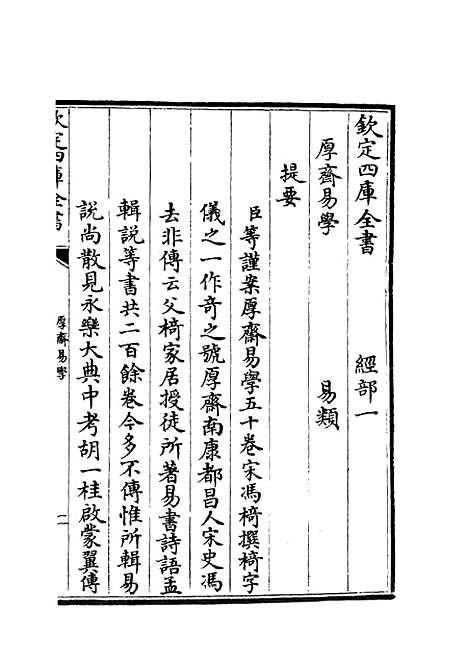 欽定四庫全書　經部一
厚齋易學　易類
提要
臣等謹案厚齋易學五十卷宋馮椅撰椅字
儀之一作奇之號厚齋南康都昌人宋史馮
去非傳云父椅家居授徒所著易書詩語孟
輯說等書共二百餘卷今多不傳惟所輯易
說尚散見永樂大典中考胡一桂啟蒙翼傳
欽定四庫全書
厚齋易學